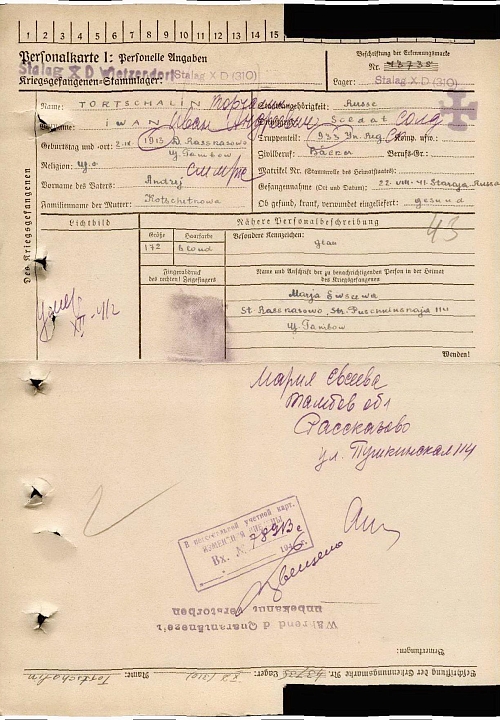 1 2 3 4 5 6 7 8 9 10 11 12 13 14 15
Personalkarte I: Personelle Angaben
Beschriftung der Erkennungsmarke
Stalag X D Wietzendorf Stalag X D (310)
Nr. 43738
Kriegsgefangenen-Stammlager:
Lager: Stalag X D (310)
Des Kriegsgefangenen
Name: TORTSCHALIN
Staatsangehörigkeit: Russe
Vorname: IWAN Иван Андреевич
Dienstgrad: Soldat солд
Geburtstag und -ort: 2.IX. 1913 D. Rassnasowo
Truppenteil: 933 Jn. Reg. Komp. usw.:
Uj. Tambow
Zivilberuf: Bäcker Berufs-Gr.:
Religion:
Matrikel Nr. (Stammrolle des Heimatstaates):
Vorname des Vaters: Andrej
Gefangennahme (Ort und Datum): 22.VIII.41. Staraja-Russa
Familienname der Mutter: Kotschetnowa
Ob gesund, krank, verwundet eingeliefert: gesund
43
Lichtbild
Nähere Personalbeschreibung
Größe Haarfarbe Besondere Kennzeichen:
172 blond
Fingerabdruck des rechten Zeigefingers
Name und Anschrift der zu benachrichtigenden Person in der Heimat des Kriegsgefangenen
Marja Ewseewa
St. Rassnasowo, Str. Puschkinskaja 114
Uj. Tambow
Wenden!
Мария Евсеева
Тамбов обл
Рассказово
ул. Пушкинская 114
В персональной учетной карт.
ИЗМЕНЕНИЯ ВНЕСЕНЫ
Вх. № 78913с
1946
Während d Quarantänezt.
unbekannt verstorben
Bemerkungen:
Beschriftung der Erkennungsmarke Nr. 43738 Lager: X D (310) Name: Tortschalin